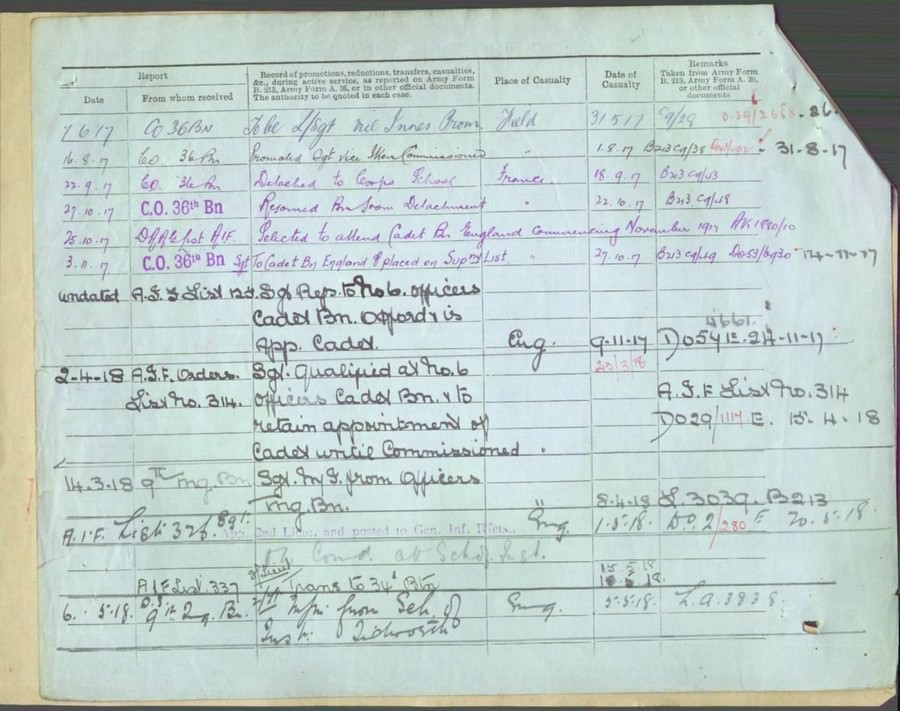 Report
Record of promotions, reductions, transfers, casualties, &c., during active service, as reported on Army Form B. 213, Army Form A. 36, or in other official documents. The authority to be quoted in each case.
Place of Casualty
Date of Casualty
Remarks Taken from Army Form B. 213, Army Form A. 36, or other official documents
Date From whom received
7 6 17 CO 36 Bn To be L/Sgt vice Innes Prom Field 31 5 17 C9/28 26
16.8.17 Co. 36 Bn Promoted Sgt vice Commissioned " 1.8.17 B213 C9/38 31-8-17
22.9.17 Co. 36 Bn Detached to Corps School France 18.9.17 B213 C9/43
27.10.17 C.O. 36th Bn Resumed Bn from Detachment " 22.10.17 B213 C9/48
25.10.17 A.I.F. Selected to attend Cadet Bn England Commencing November 1917 AK1880/10
3.11.17 C.O. 36th Bn Sgt To Cadet Bn England & placed on Supny List " 27.10.17 B213 C9/49 DO53/ 14-11-17
undated A.I.F List 123. Sgt Rep. to No 6. Officers
Cadet Bn. Oxford & is 4661.
App. Cadet. Eng. 9-11-17 DO54 E. 24-11-17
20/3/18
2-4-18 A.I.F. Orders. Sgt. Qualified at No. 6
List No. 314. Officers Cadet Bn. & to A.I.F List No. 314
retain appointment of DO29/1114 E. 15-4-18
Cadet until Commissioned.
14.3.18 9th Trng. Bn Sgt. M.I. from Officers
Trng. Bn. 8-4-18 L. 3039. B213
A.I.F. List 326 Sgt. App. 2nd Lieut. and posted to Gen. Inf. Rfcts. Eng. 1.5.18. D.O. 2/280 E 20.5.18.
15 5 18
A.I.F List 337 2/Lieut trans to 34 Btn
6. 5.18. 9th Trng. Bn. M/in from Sch. of Eng. 5.5.18. L.A. 3838.
Inst: Tidworth